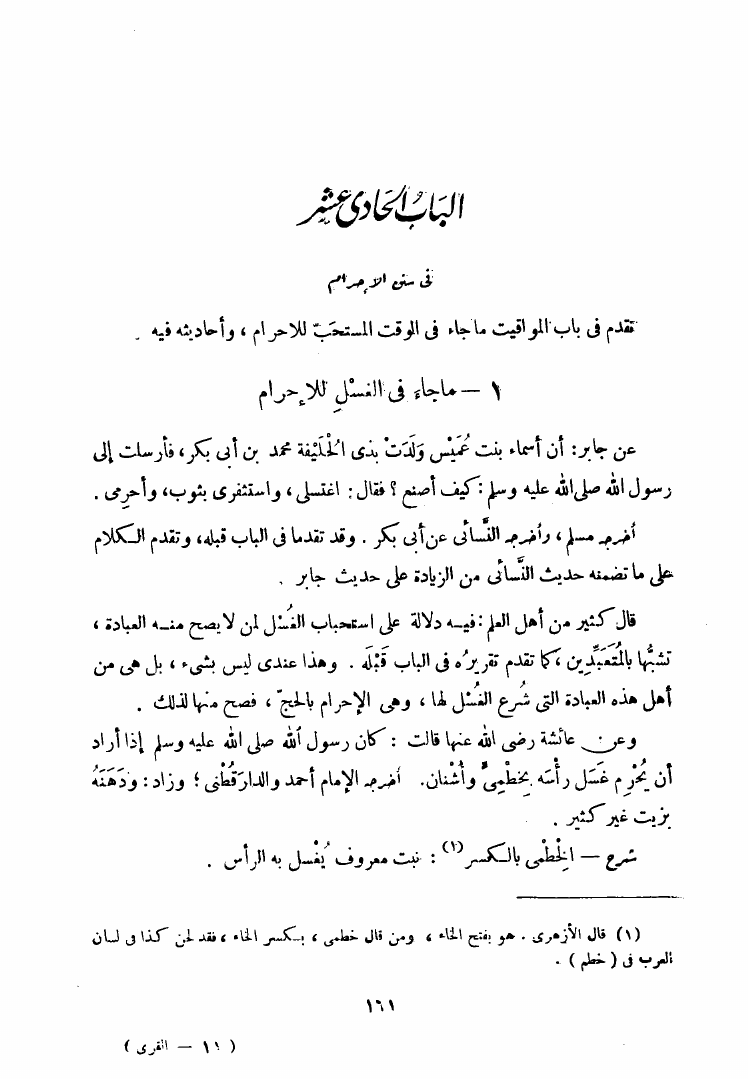 الباب الحادى عشر
فى سنن الإحرام
تقدم فى باب المواقيت ما جاء فى الوقت المستحَبّ للاحرام ، وأحاديثه فيه .
١ — ما جاءَ فى الغسْلِ للإحرام
عن جابر: أن أسماء بنت عُمَيْس وَلَدَتْ بذى الحُلَيْفة محمد بن أبى بكر، فأرسلت إلى
رسول الله صلى الله عليه وسلم : كيف أصنع ؟ فقال : اغتسلى ، واستثفرى بثوب، وأحرمى .
أخرجه مسلم ، وأخرجه النَّسائى عن أبى بكر . وقد تقدما فى الباب قبله، وتقدم الكلام
على ما تضمنه حديث النَّسائى من الزيادة على حديث جابر .
قال كثير من أهل العلم : فيه دلالة على استحباب الغُسْل لمن لا يصح منه العبادة ،
تشبُّها بالمُتَعَبِّدِين ، كما تقدم تقريرُه فى الباب قَبْلَه . وهذا عندى ليس بشىء ، بل هى من
أهل هذه العبادة التى شُرِع الغُسْل لها ، وهى الإحرام بالحجّ ، فصح منها لذلك .
وعن عائشة رضى الله عنها قالت : كان رسول الله صلى الله عليه وسلم إذا أراد
أن يُحْرِم غَسَل رأسَه بِخِطْمِىٍّ وأشْنان. أخرجه الإمام أحمد والدارَقُطْنى ؛ وزاد : ودَهَنَهُ
بزيت غير كثير .
شرح — الخِطْمى بالكسر(١) : نبت معروف يُغْسل به الرأس .
(١) قال الأزهرى . هو بفتح الخاء ، ومن قال خطمى ، بكسر الخاء ، فقد لحن كذا فى لسان
العرب فى ( خطم ) .
١٦١
( ١١ — القرى )